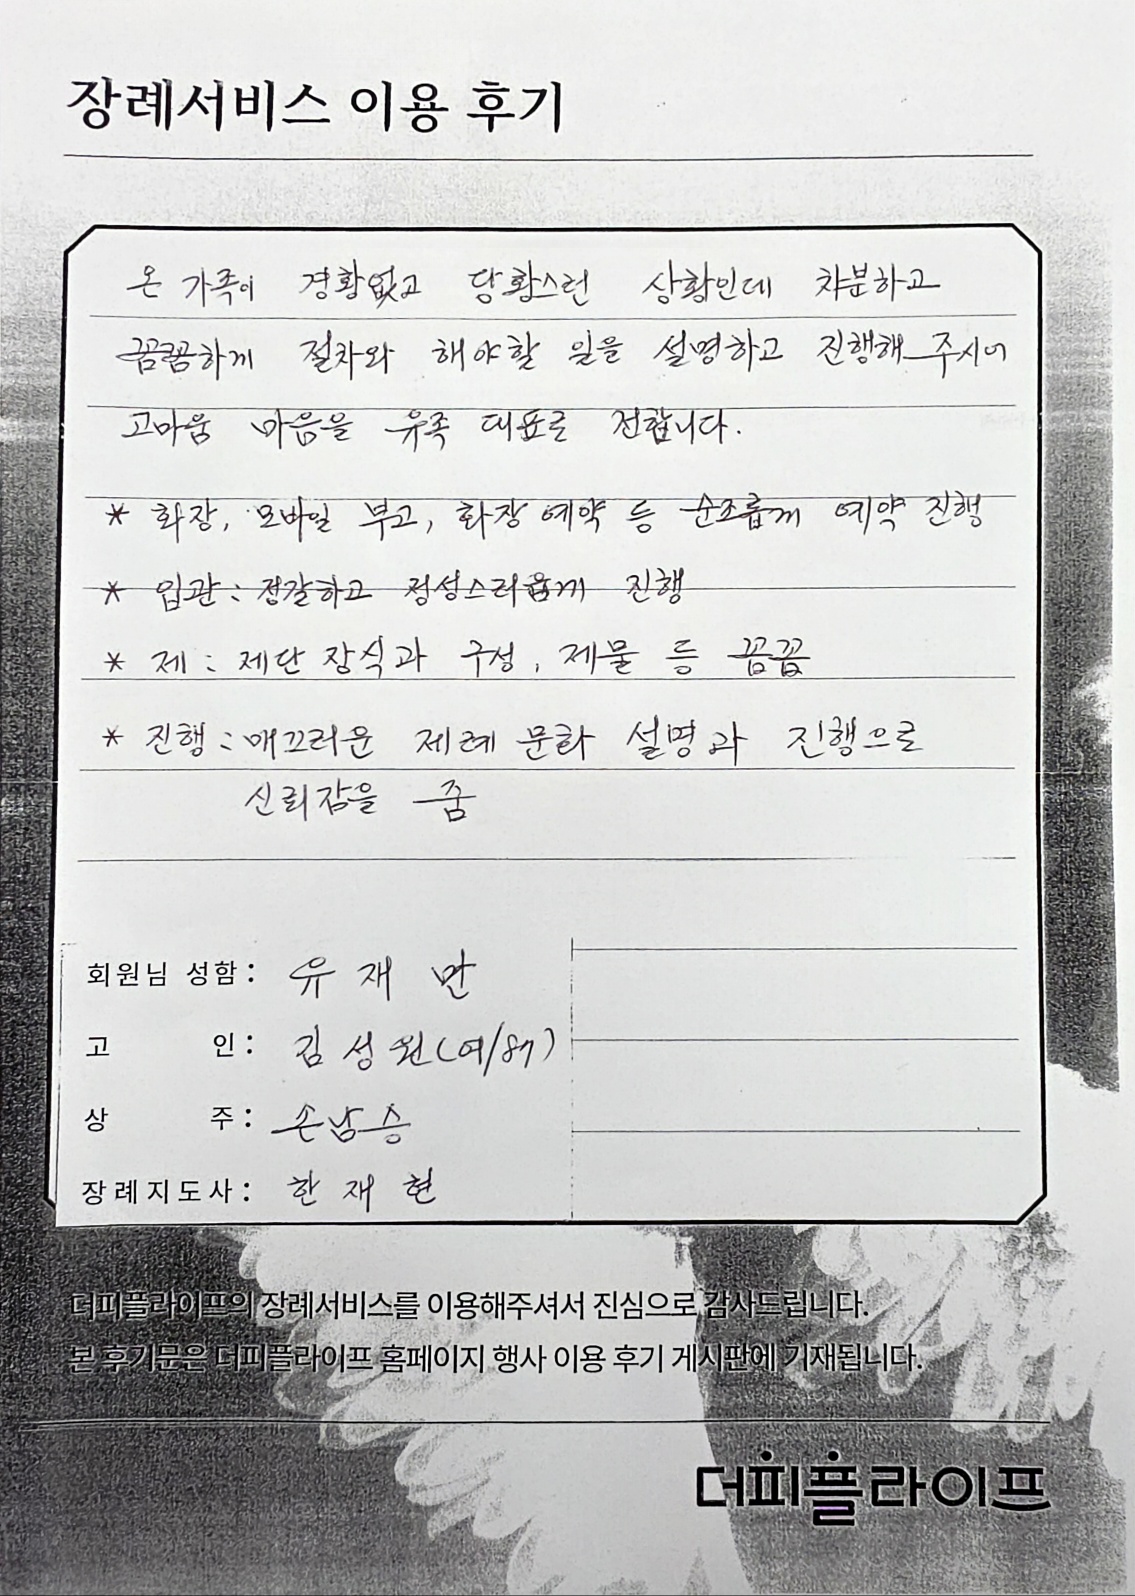 장례서비스 이용 후기
온 가족이 경황없고 당황스런 상황인데 차분하고
꼼꼼하게 절차와 해야할 일을 설명하고 진행해 주시어
고마움 마음을 유족 대표로 전합니다.
* 화장, 모바일 부고, 화장 예약 등 순조롭게 예약 진행
* 입관 : 정갈하고 정성스러웁게 진행
* 제 : 제단 장식과 구성, 제물 등 꼼꼼
* 진행 : 매끄러운 제례 문화 설명과 진행으로
신뢰감을 줌
회원님 성함 : 유재만
고 인 : 김성원(여/87)
상 주 : 손남승
장례지도사 : 한재현
더피플라이프의 장례서비스를 이용해주셔서 진심으로 감사드립니다.
본 후기문은 더피플라이프 홈페이지 행사 이용 후기 게시판에 기재됩니다.
더피플라이프